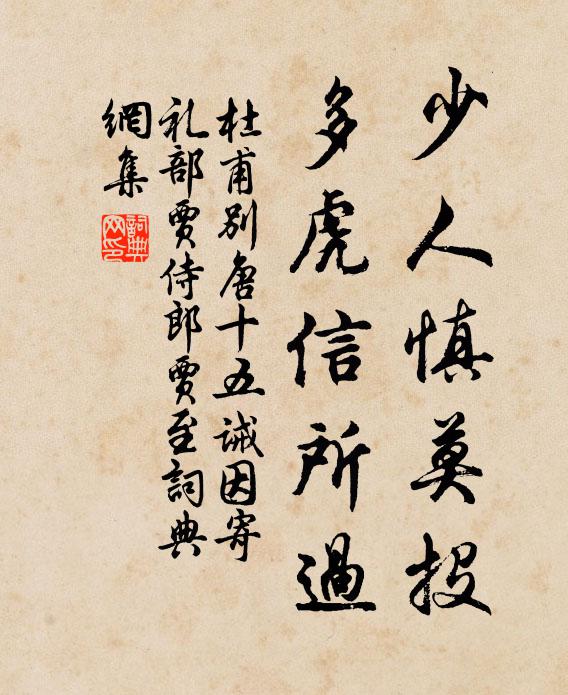 少人慎莫投
多虎信所過
杜甫別唐十五誡因寄
礼部賈侍郎賈至詞典
網集
詞典網印